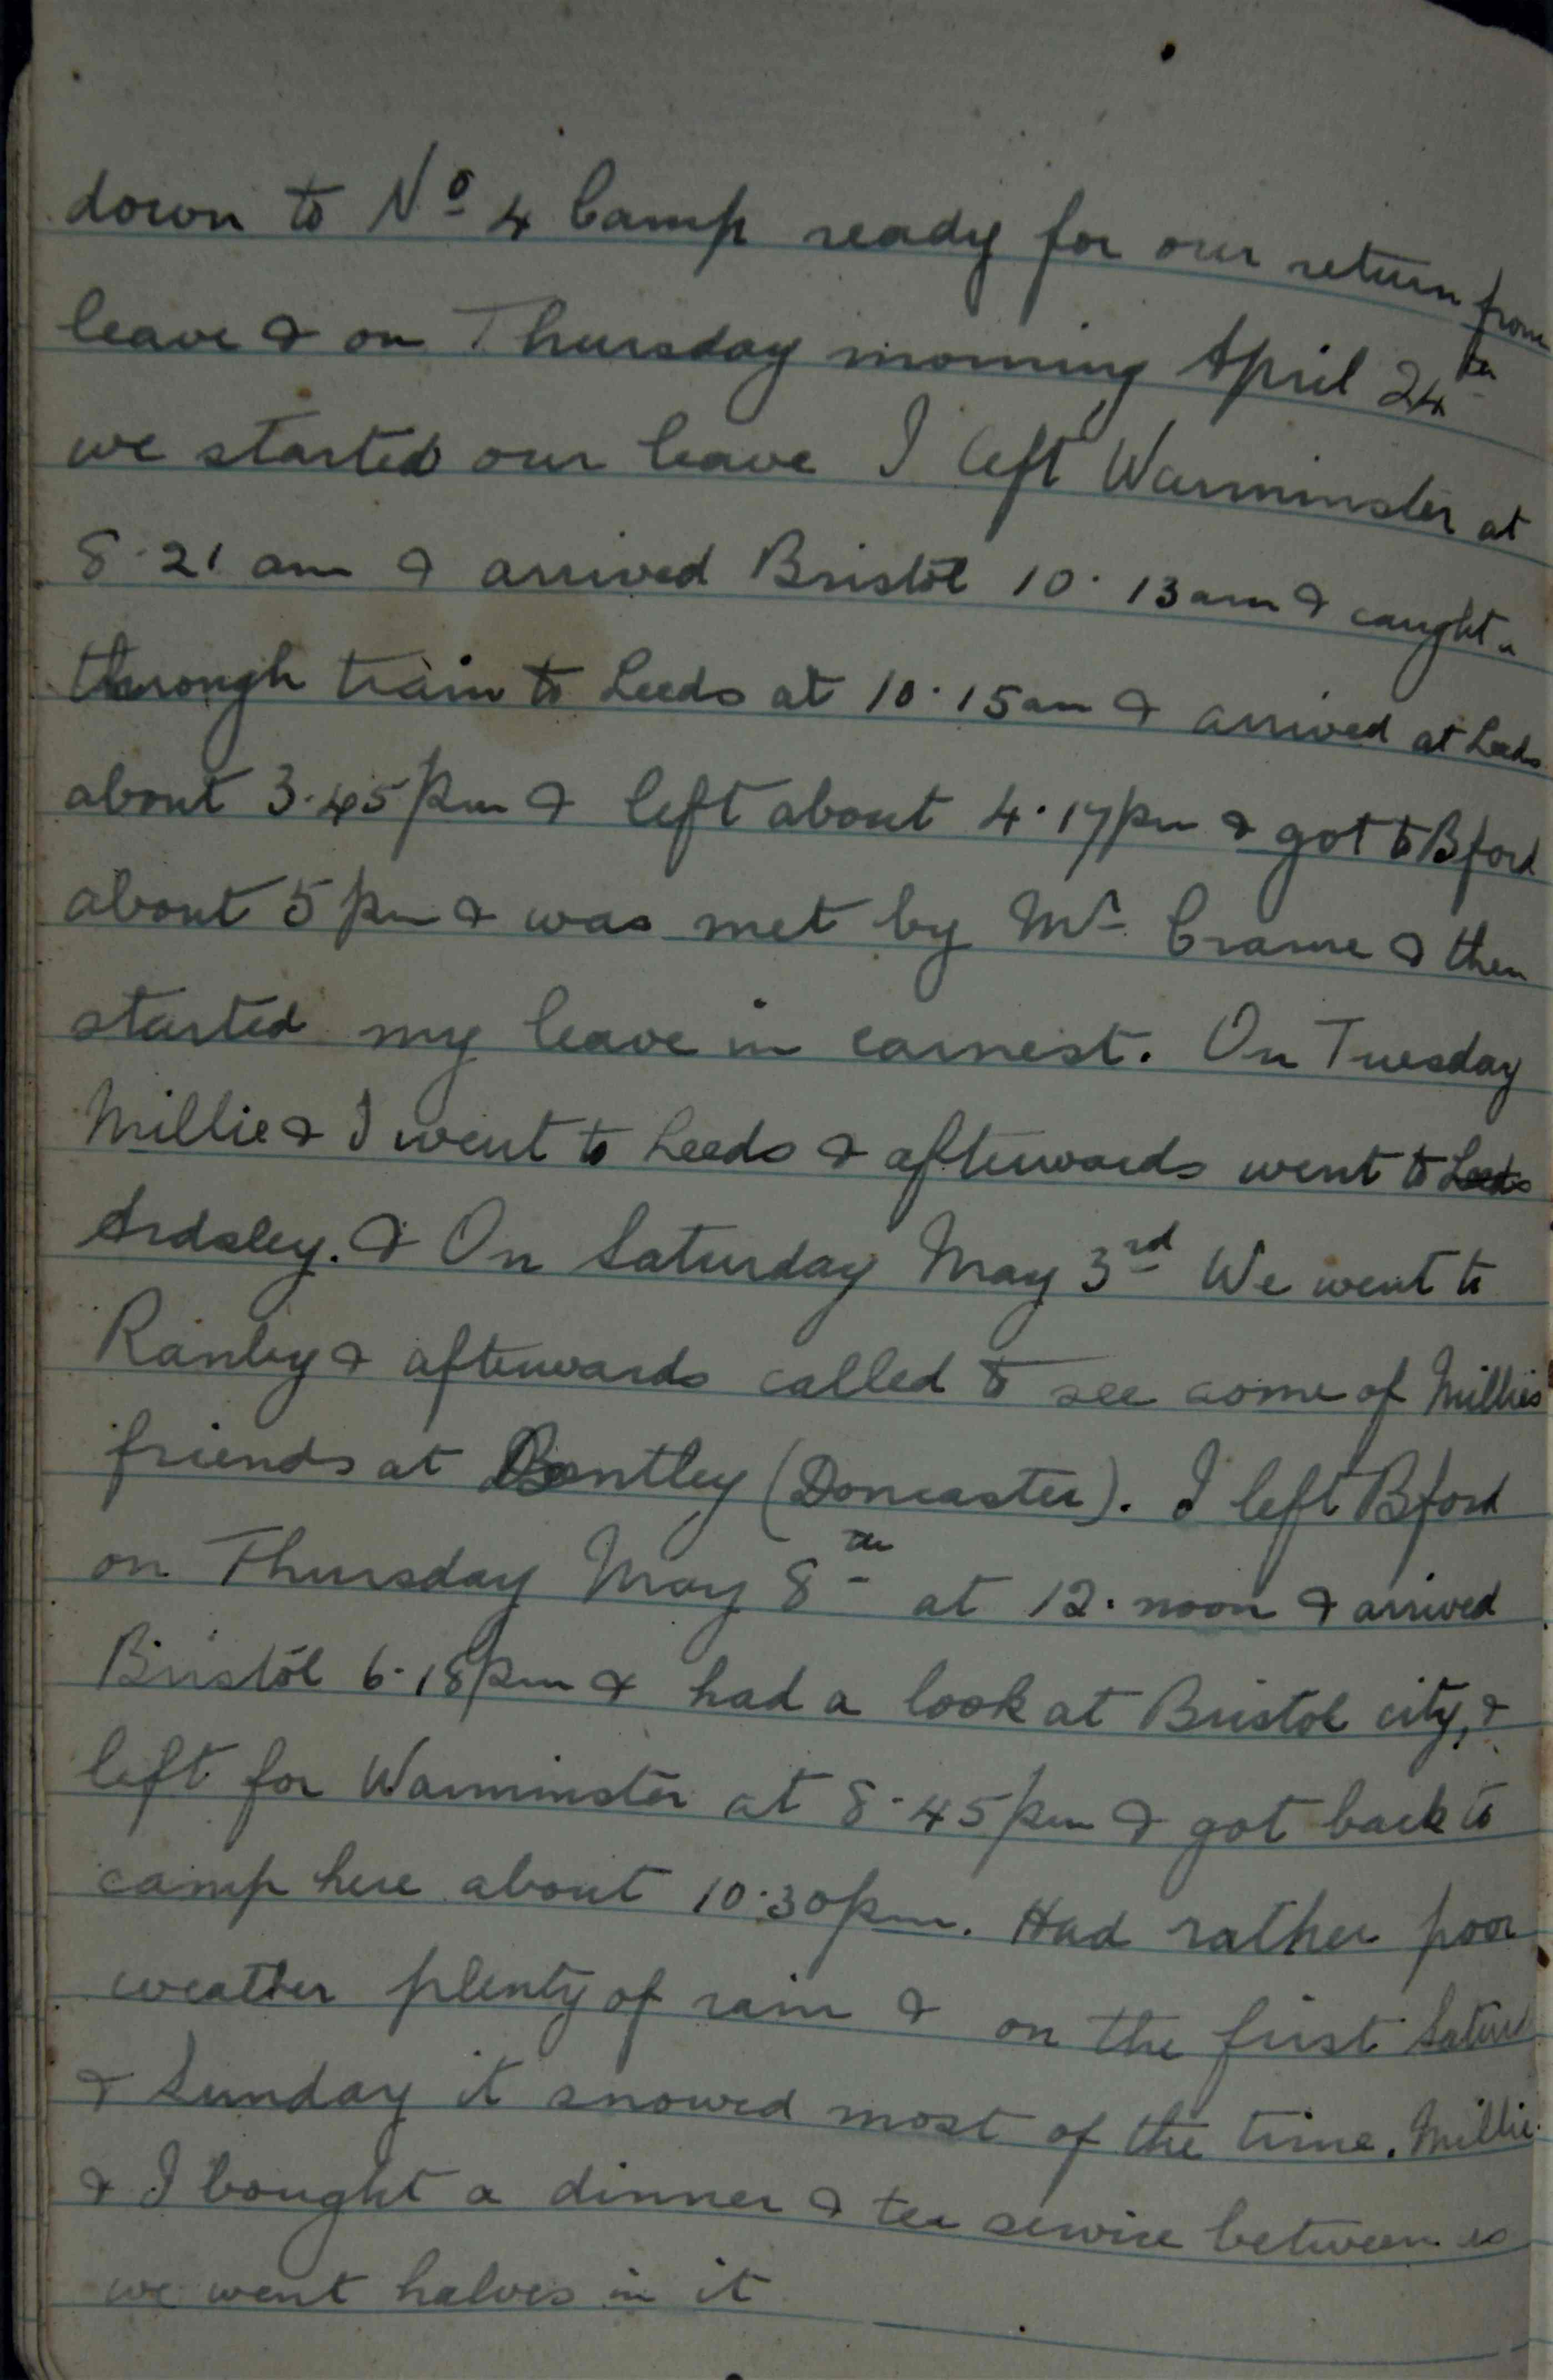 down to Nº 4 Camp ready for our return from
leave & on Thursday morning April 24th
we started our leave I left Warminster at
8.21 am & arrived Bristol 10.13am & caught a
through train to Leeds at 10.15am & arrived at Leeds
about 3.45pm & left about 4.17pm & got to Bford
about 5pm & was met by Mr & then
started my leave in earnest. On Tuesday
Millie & I went to Leeds & afterwards went to Leeds
Ardsley. & On Saturday May 3rd We went to
Ranby & afterwards called to see some of Millies
friends at Bentley (Doncaster). I left Bford
on Thursday May 8th at 12.noon & arrived
Bristol 6.18pm & had a look at Bristol city, &
left for Warminster at 8.45pm & got back to
camp here about 10.30pm. Had rather poor
weather plenty of rain & on the first Saturd
& Sunday it snowed most of the time. Millie
& I bought a dinner & tea service between us
we went halves in it